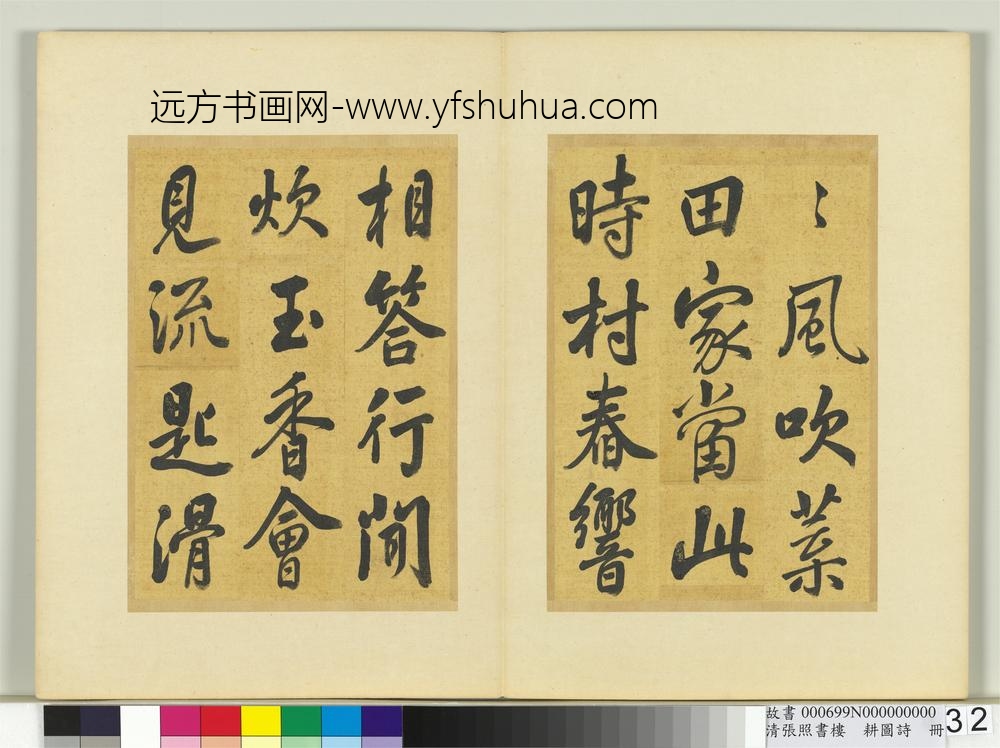 远方书画网-www.yfshuhua.com
〻風吹葉
田家當此
時村舂響
相答行聞
炊玉香會
見流匙滑
故書 000699N000000000
清張照書樓 耕圖詩 冊
32